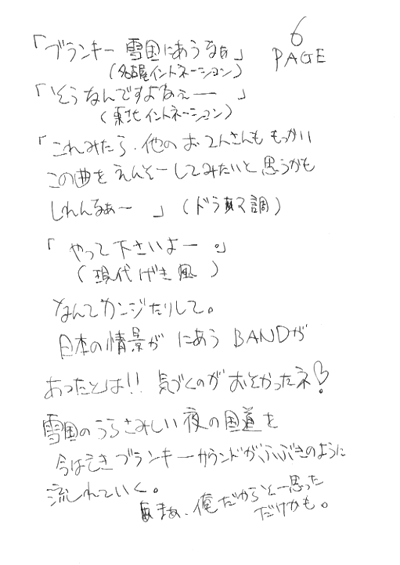 6
PAGE
「ブランキー 雪国にあうなぁ」
(名古屋イントネーション)
「そうなんですよねぇー 」
(東北イントネーション)
「これみたら、他のお さんも もっかい
この曲をえんそーしてみたいと思うかも
しれんなぁ〜 」(ドラ 調)
「 やって下さいよー 。」
( 現代げき風 )
なんてカンジだりして。
日本の情景が にあう BANDが
あったとは!! 気づくのが おそかったネ!
雪国のうらさみしい夜の国道を
今はときブランキーサウンドがふぶきのように
流れていく。
まぁ、俺だからそー思った
だけかも。